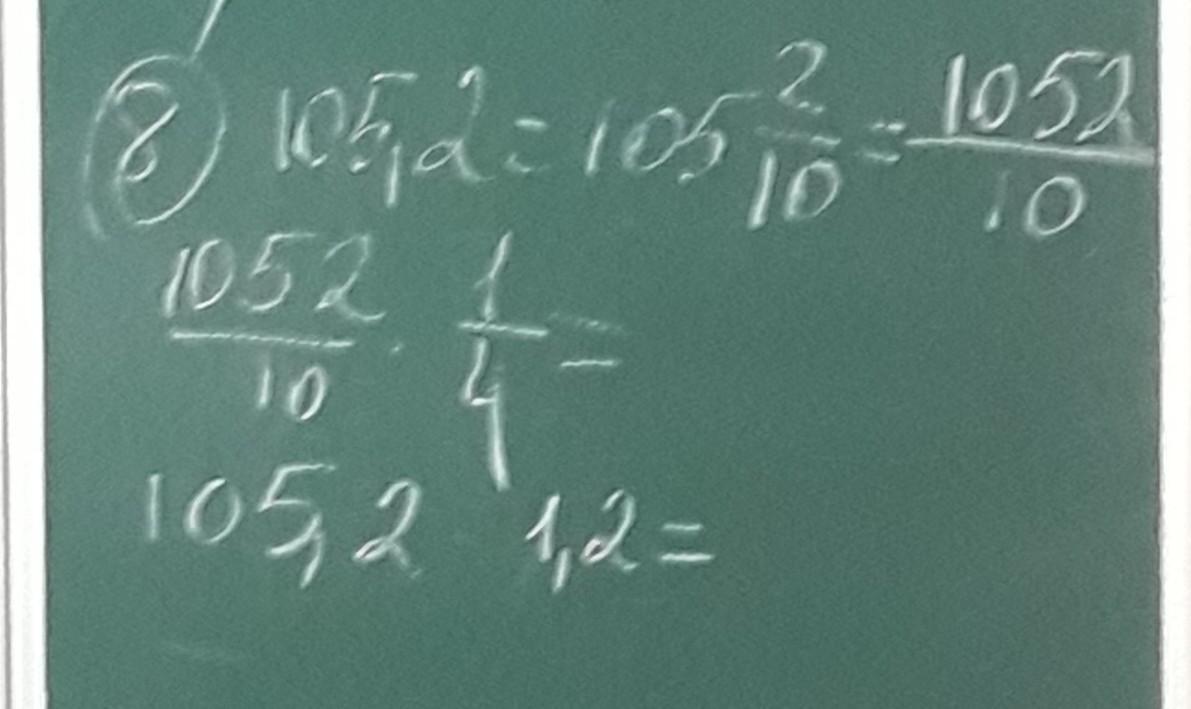 ⑧ 105,2 = 105 2/10 = 1052/10
1052/10 · 1/4 =
105,2 1,2 =